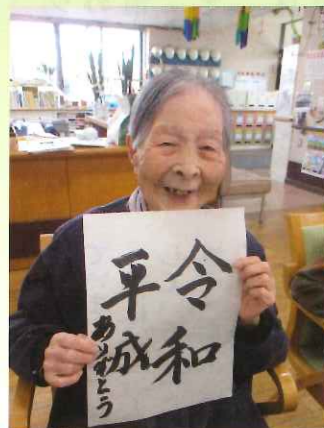 令和
平成
ありがとう